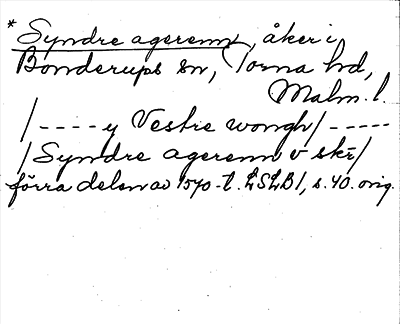 * Syndre agerenn, åker i
Bonderups sn, Torna hd,
Malm. l.
/ - - - - y Vestre wongh / - - - - -
/ Syndre agerenn v skr /
förra delen av 1570-t. LSLB 1, s. 40. orig.